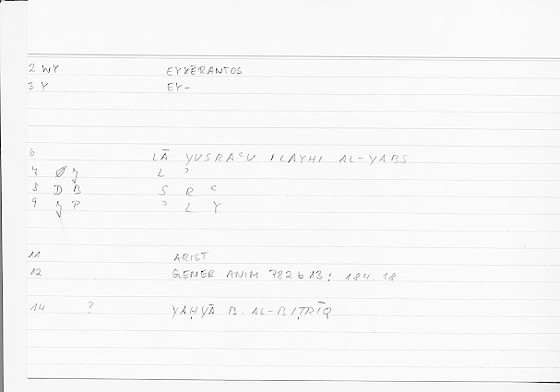 2 WY EYXĒRANTOS
3 Y EY-
6 LĀ YUSRAʿU ILAYHI AL-YABS
7 Ø L ʾ
8 D B S R ʿ
9 P ʾ L Y
11 ARIST
12 GENER ANIM 782 b 13; 184.18
14 ? YAḤYĀ B. AL-BIṬRĪQ